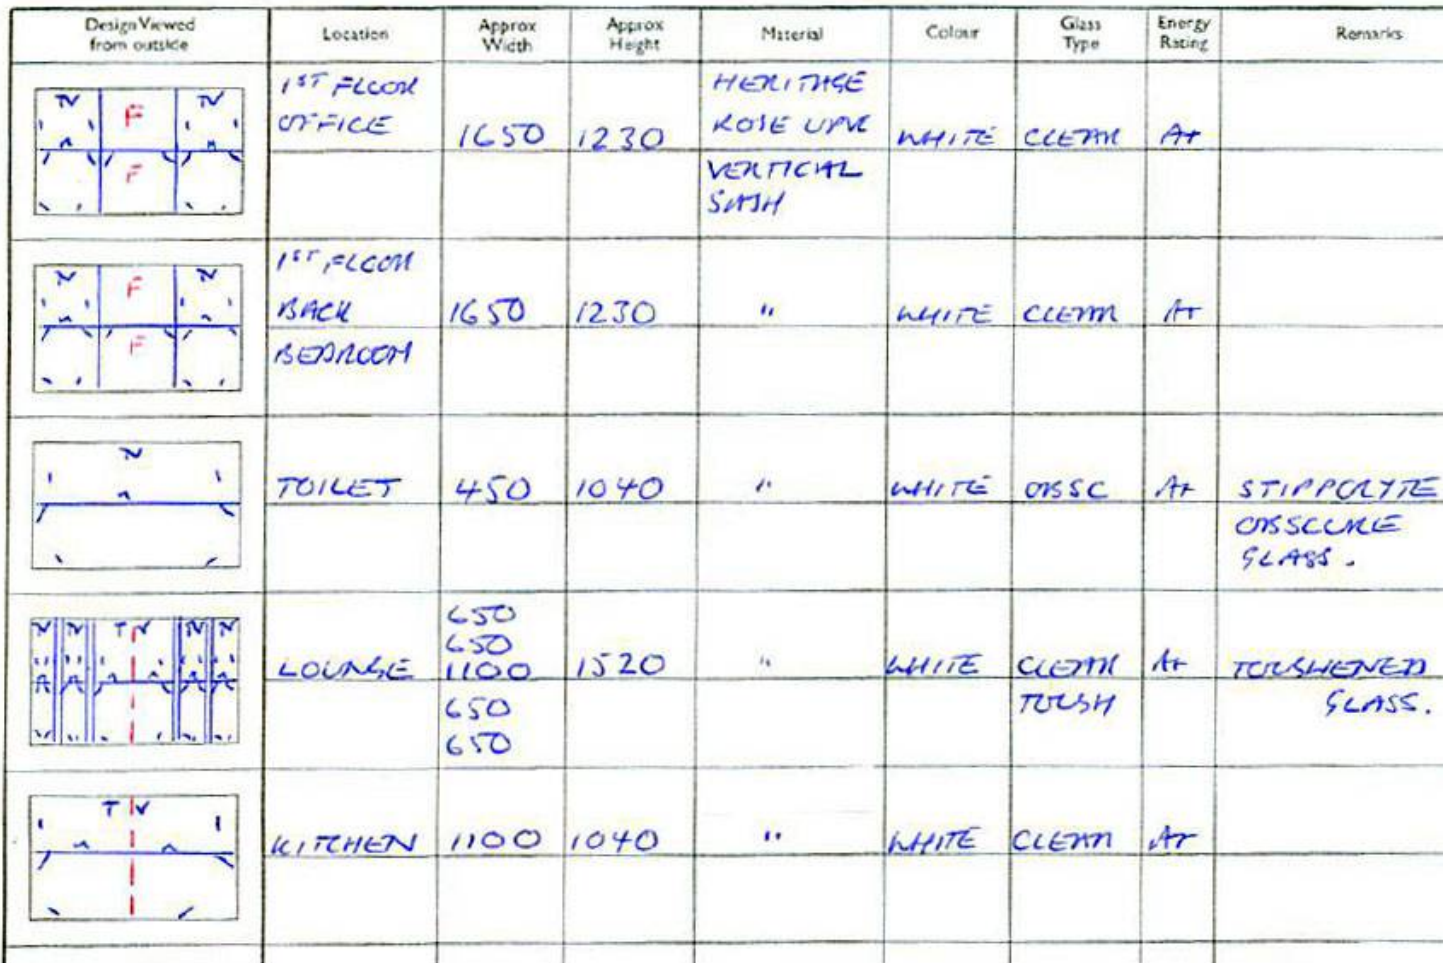 Design Viewed from outside | Location | Approx Width | Approx Height | Material | Colour | Glass Type | Energy Rating | Remarks
TV F TV
F
1ST FLOOR OFFICE | 1650 | 1230 | HERITAGE ROSE UPVC VERTICAL SASH | WHITE | CLEAR | A+
TV F TV
F
1ST FLOOR BACK BEDROOM | 1650 | 1230 | " | WHITE | CLEAR | A+
TV
TOILET | 450 | 1040 | " | WHITE | OBSC | A+ | STIPPOLYTE OBSCURE GLASS.
TV TV TV TV TV
LOUNGE | 650 650 1100 650 650 | 1520 | " | WHITE | CLEAR TOUGH | A+ | TOUGHENED GLASS.
TV
KITCHEN | 1100 | 1040 | " | WHITE | CLEAR | A+